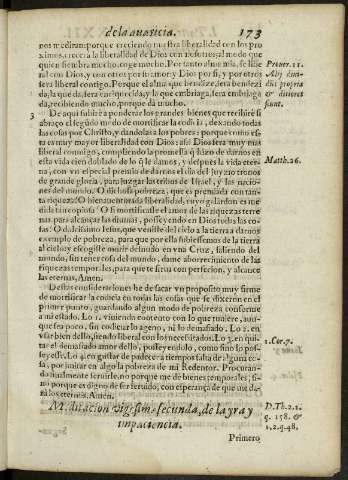 de la auaricia. 173
nos mediran: porque creciendo nuestra liberalidad con los pro
ximos, crecerà la liberalidad de Dios con nosotros: al modo que
quien siembra mucho, coge mucho. Por tanto alma mia, se libe
ral con Dios, y con otros por su amor, y Dios por si, y por otros
sera liberal contigo. Porque el alma que bendize, sera bendezi
da, la que da, sera enriquezida, y la que embriaga, sera embriaga
da, recibiendo mucho, porque da mucho.
3 De aqui subirè a ponderar los grandes bienes que recibirè si
abraço el segũdo modo de mortificar la codicia, dexando todas
las cosas por Christo, y dandolas a los pobres: porque como es
ta es muy mayor liberalidad con Dios: assi Dios sera muy mas
liberal conmigo, cumpliendo la promessa q̃ hizo de darnos en
esta vida cien doblado de lo q̃ le damos, y despues la vida eter
na, con vn especial premio de darnos el dia del juyzio tronos
de grande gloria, para juzgar las tribus de Israel, y las nacio-
nes del mundo. O dichosa pobreza, que es premiada con tan
ta riqueza! O bienauenturada liberalidad, cuyo galardon es me
dida tan copiosa! O si mortificasse el amor de las riquezas terre
nas, para alcançar las diuinas, posseyendo en Dios todas las co-
sas! O dulcissimo Iesus, que veniste del cielo a la tierra a darnos
exemplo de pobreza, para que por ella subiessemos de la tierra
al cielo, y escogiste morir desnudo en vna Cruz, saliendo del
mundo, sin tener cosa del mundo, dame aborrecimiento de las
riquezas temporales, para que te sirua con perfecion, y alcance
las eternas, Amen.
Destas consideraciones he de sacar vn proposito muy firme
de mortificar la codicia en todas las cosas que se dixeron en el
primer punto, guardando algun modo de pobreza conforme
a mi estado. Lo 1. viuiendo contento con lo que tuuiere, aun-
que sea poco, sin codiciar lo ageno, ni lo demasiado. Lo 2. en
vsar bien dello, siendo liberal con los necessitados. Lo 3. en qui
tar el demasiado amor dello, posseyendolo, como sino lo pos-
seyesse. Lo 4. en gustar de padecer a tiempos falta de alguna co
sa, por imitar en algo la pobreza de mi Redentor. Procuran-
do finalmente seruirle, no porque me de bienes temporales, si-
no porque es digno de ser seruido, con esperança de que me da-
rà los eternos. Amen.
Meditacion vigesima secunda, de la yra y
impaciencia.
Primero
Prouer. 11.
Matth. 26.
1. Cor. 7.
D. Th. 2. 2.
q. 158. &
1. 2. q. 48.